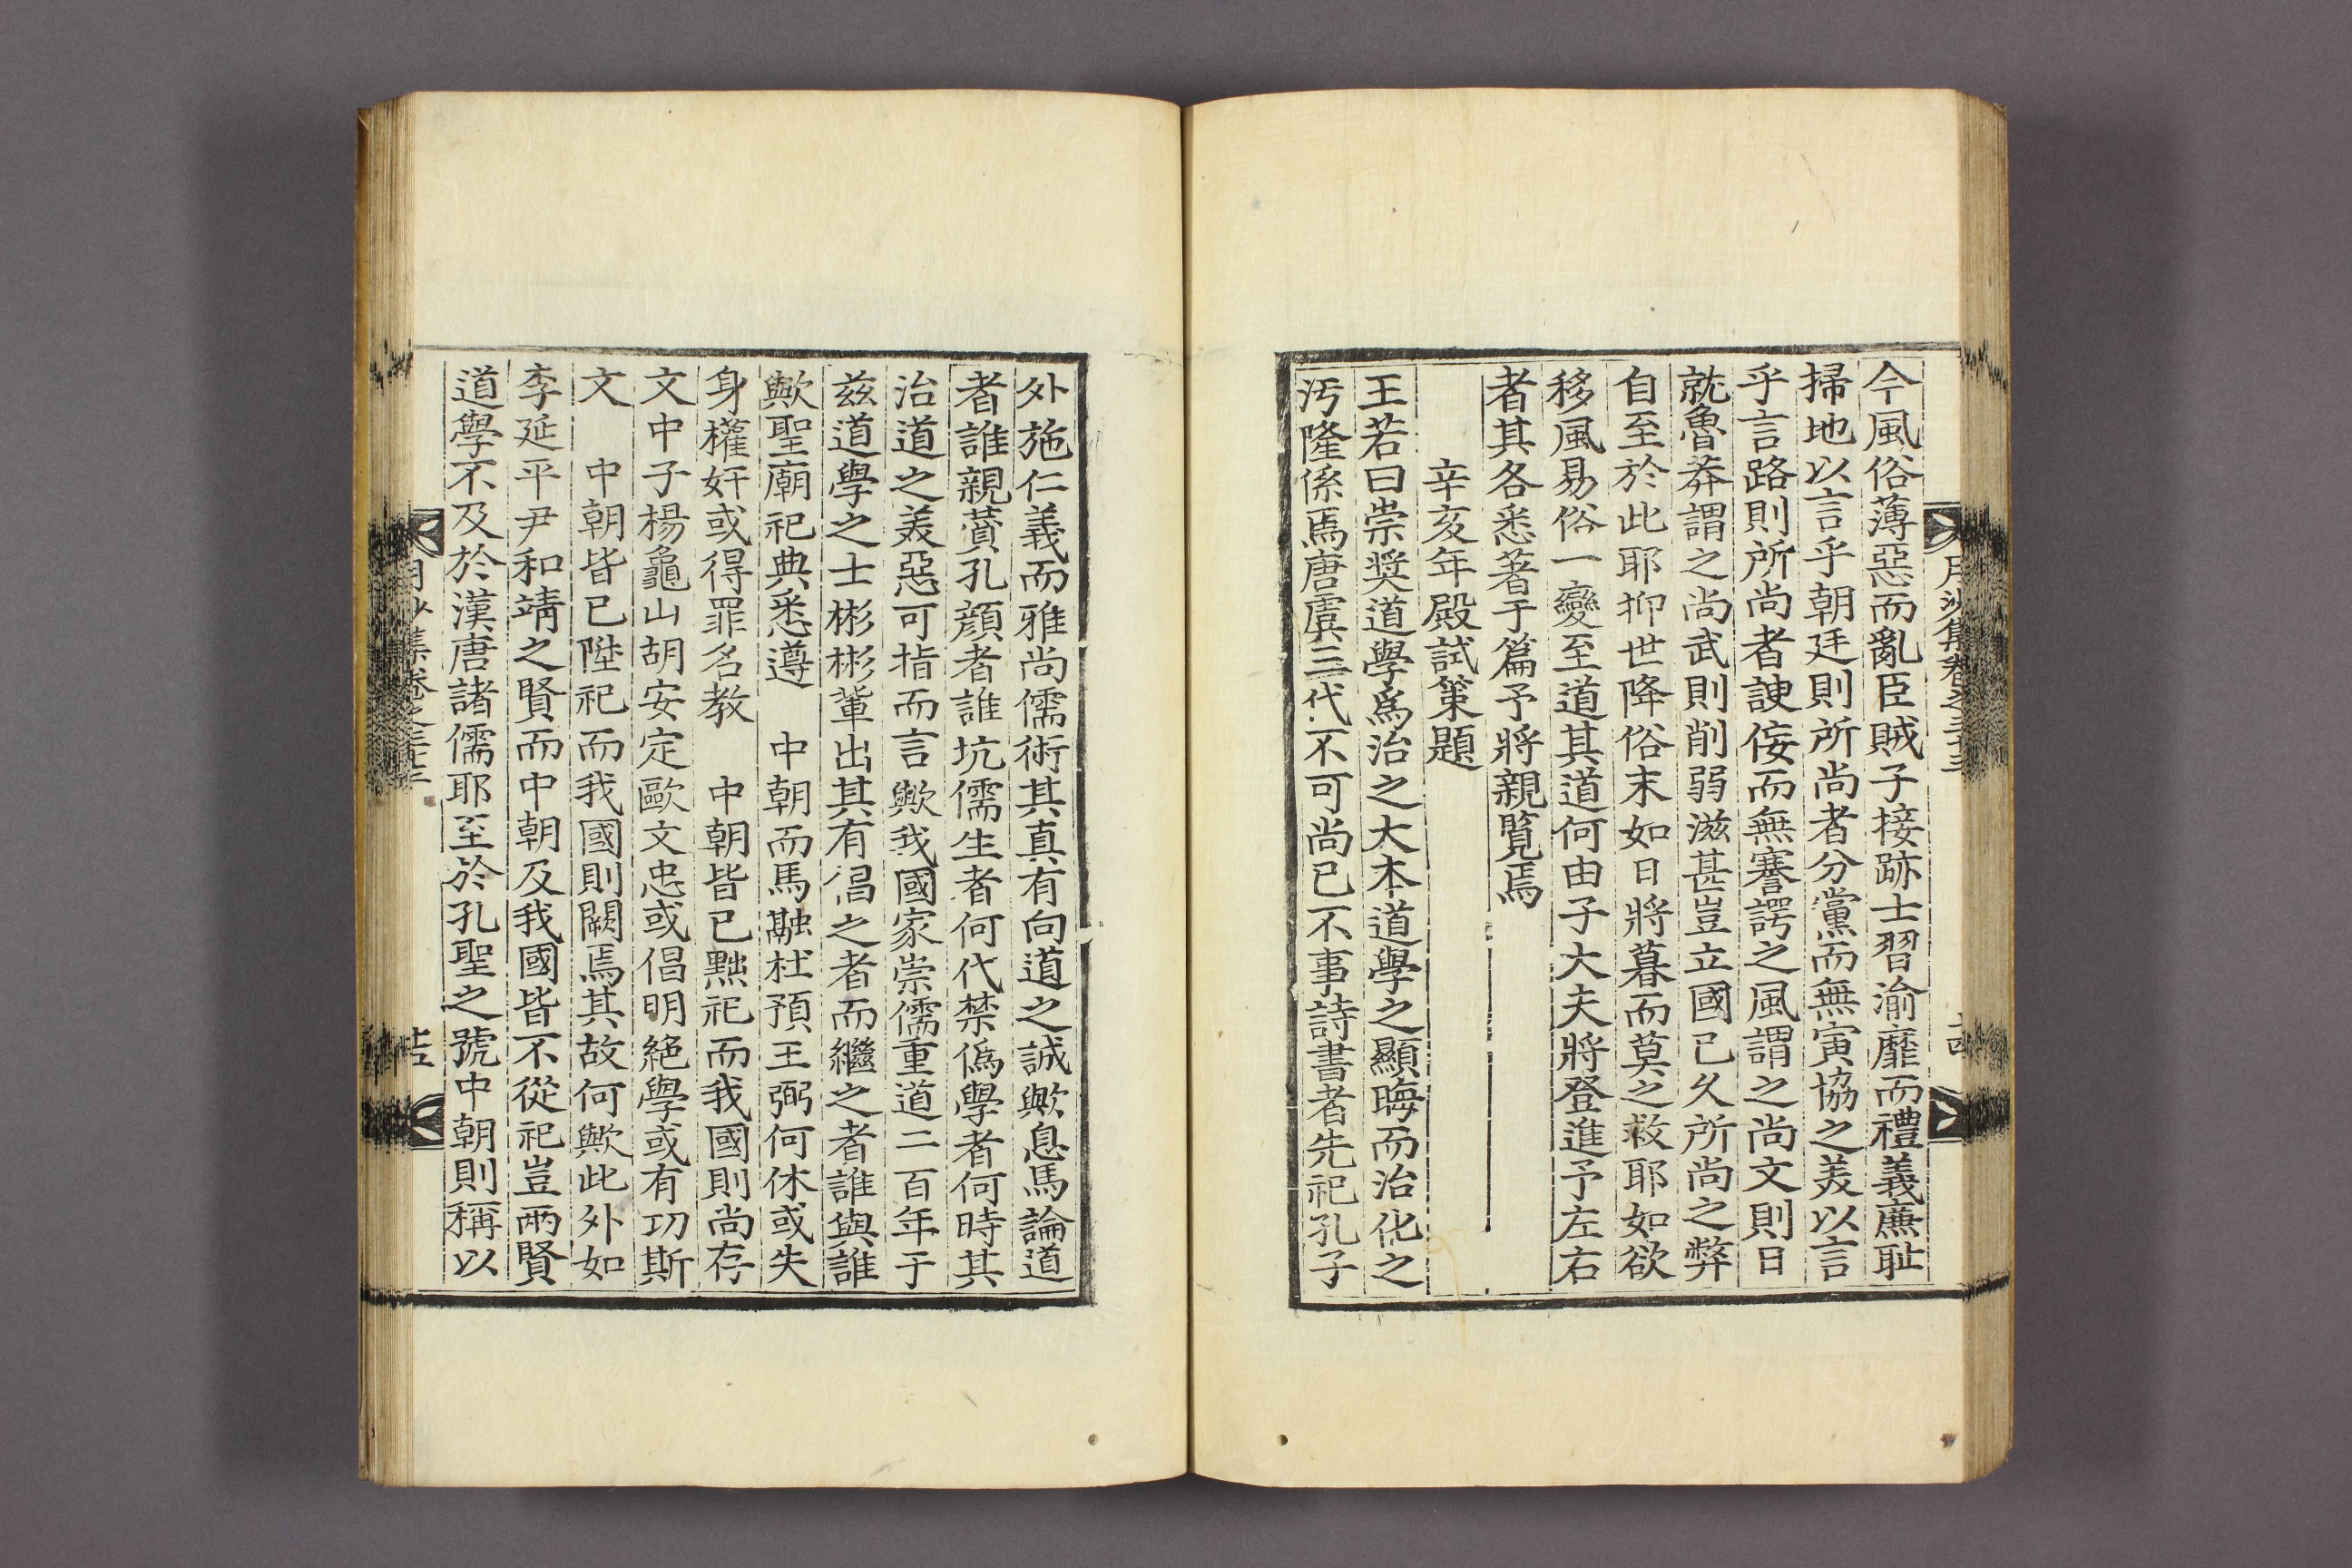 今風俗薄惡而亂臣賊子接跡士習渝靡而禮義廉恥
掃地以言乎朝廷則所尚者分黨而無寅協之美以言
乎言路則所尚者諛侫而無謇諤之風謂之尚文則日
就魯莽謂之尚武則削弱滋甚豈立國已久所尚之弊
自至於此耶抑世降俗末如日將暮而莫之救耶如欲
移風易俗一變至道其道何由子大夫將登進予左右
者其各悉著于篇予將親覽焉
辛亥年殿試策題
王若曰崇奬道學爲治之大本道學之顯晦而治化之
汚隆係焉唐虞三代不可尚已不事詩書者先祀孔子
外施仁義而雅尚儒術其真有向道之誠歟息馬論道
者誰親賛孔顔者誰坑儒生者何代禁僞學者何時其
治道之美惡可指而言歟我國家崇儒重道二百年于
兹道學之士彬彬輩出其有倡之者而繼之者誰與誰
歟聖廟祀典悉遵 中朝而馬融杜預王弼何休或失
身權奸或得罪名教 中朝皆已黜祀而我國則尚存
文中子楊龜山胡安定歐文忠或倡明絶學或有功斯
文 中朝皆已陞祀而我國則闕焉其故何歟此外如
李延平尹和靖之賢而中朝及我國皆不從祀豈兩賢
道學不及於漢唐諸儒耶至於孔聖之號中朝則稱以
月沙集卷之三十三